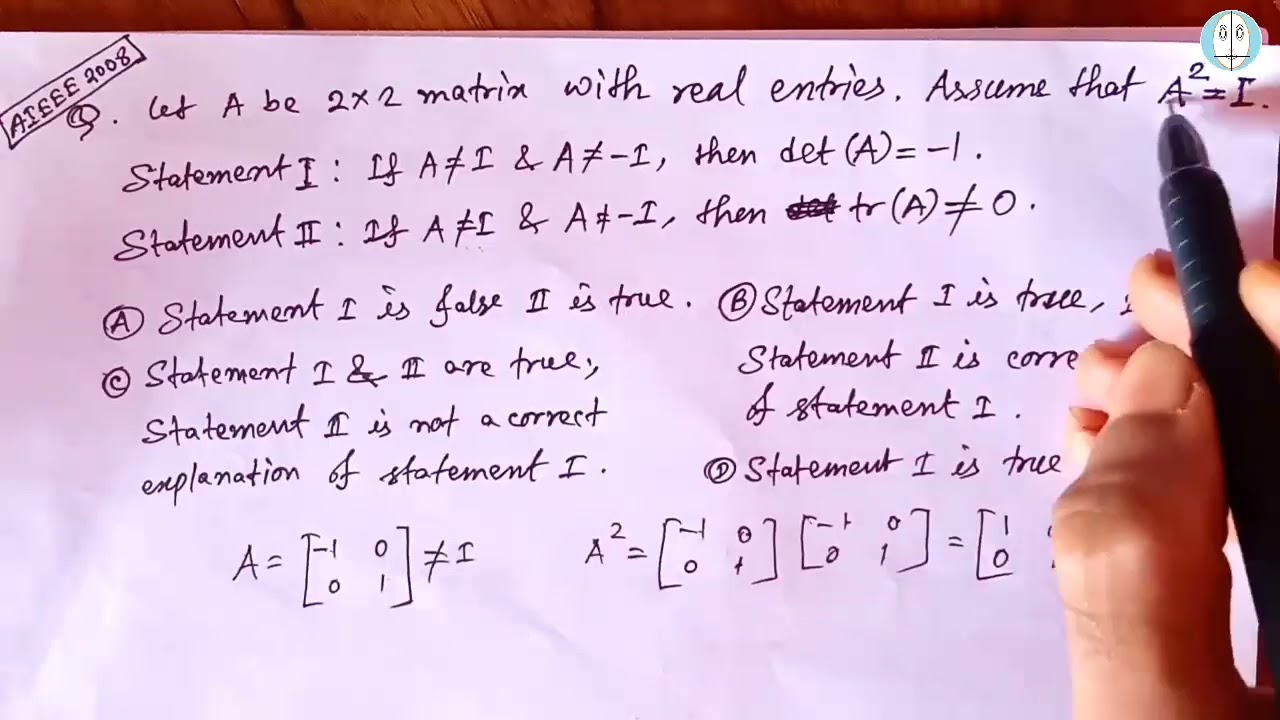 AIEEE 2008
Q. Let A be 2×2 matrix with real entries. Assume that A²=I.
Statement I : If A≠I & A≠-I, then det(A)=-1.
Statement II : If A≠I & A≠-I, then tr(A)≠0.
Ⓐ Statement I is false II is true.
Ⓑ Statement I is true,
Statement II is
of statement I.
Ⓒ Statement I & II are true;
Statement II is not a correct
explanation of statement I.
Ⓓ Statement I is true
A = [-1 0
0 1] ≠ I
A² = [-1 0
0 1] [-1 0
0 1] = [1
0